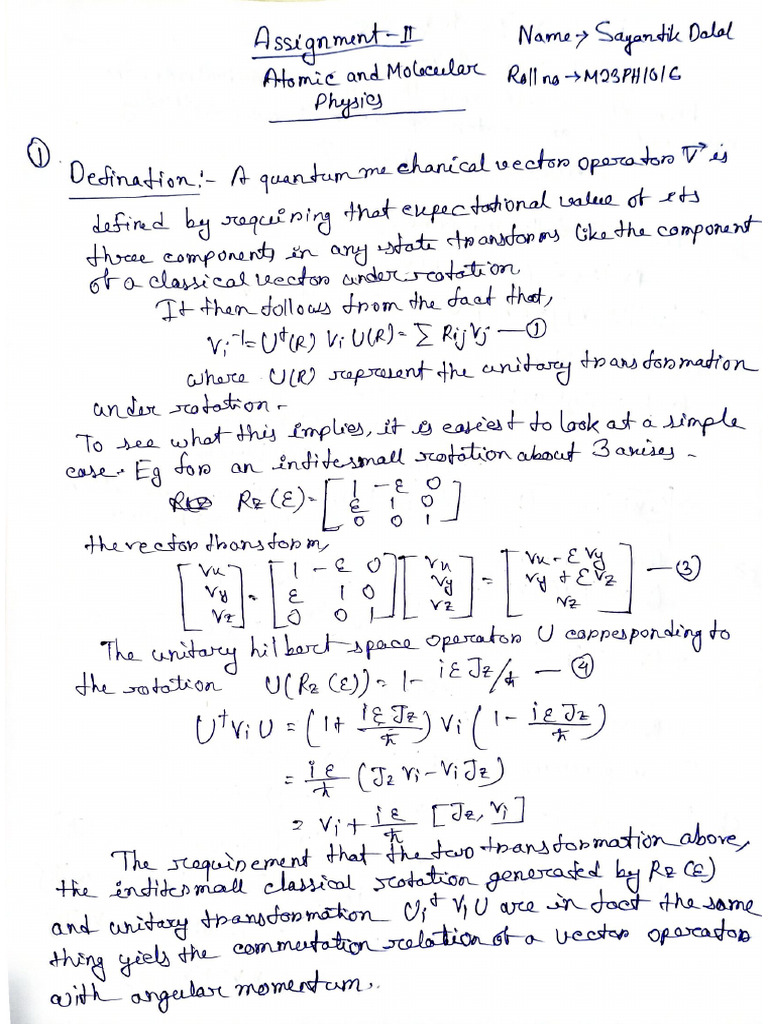 Assignment-II
Name → Sayantik Dalal
Atomic and Molecular
Roll no → M23PH1016
Physics
①.
Defination:- A quantum mechanical vector operator V⃗ is
defined by requiring that expectational value of its
three components in any state transforms like the component
of a classical vector under rotation.
It then follows from the fact that,
Vi⁻¹ = U†(R) Vi U(R) = Σ Rij Vj — ①
where U(R) represent the unitary transformation
under rotation.
To see what this implies, it is easiest to look at a simple
case. Eg for an infitesmall rotation about 3 axises -
Rz(ε) = [1 -ε 0
ε 1 0
0 0 1]
the vector transform,
[Vx Vy Vz] = [1 -ε 0; ε 1 0; 0 0 1] [Vx Vy Vz] = [Vx - εVy; Vy + εVz; Vz] — ③
The unitary hilbert space operator U corresponding to
the rotation U(Rz(ε)) = 1 - iεJz/ħ — ④
U†ViU = (1 + iεJz/ħ) Vi (1 - iεJz/ħ)
= iε/ħ (JzVi - ViJz)
= Vi + iε/ħ [Jz, Vi]
The requirement that the two transformation above,
the infitesmall classical rotation generated by Rz(ε)
and unitary transformation Ui† Vi U are in fact the same
thing yiels the commutation relation of a vector operator
with angular momentum.